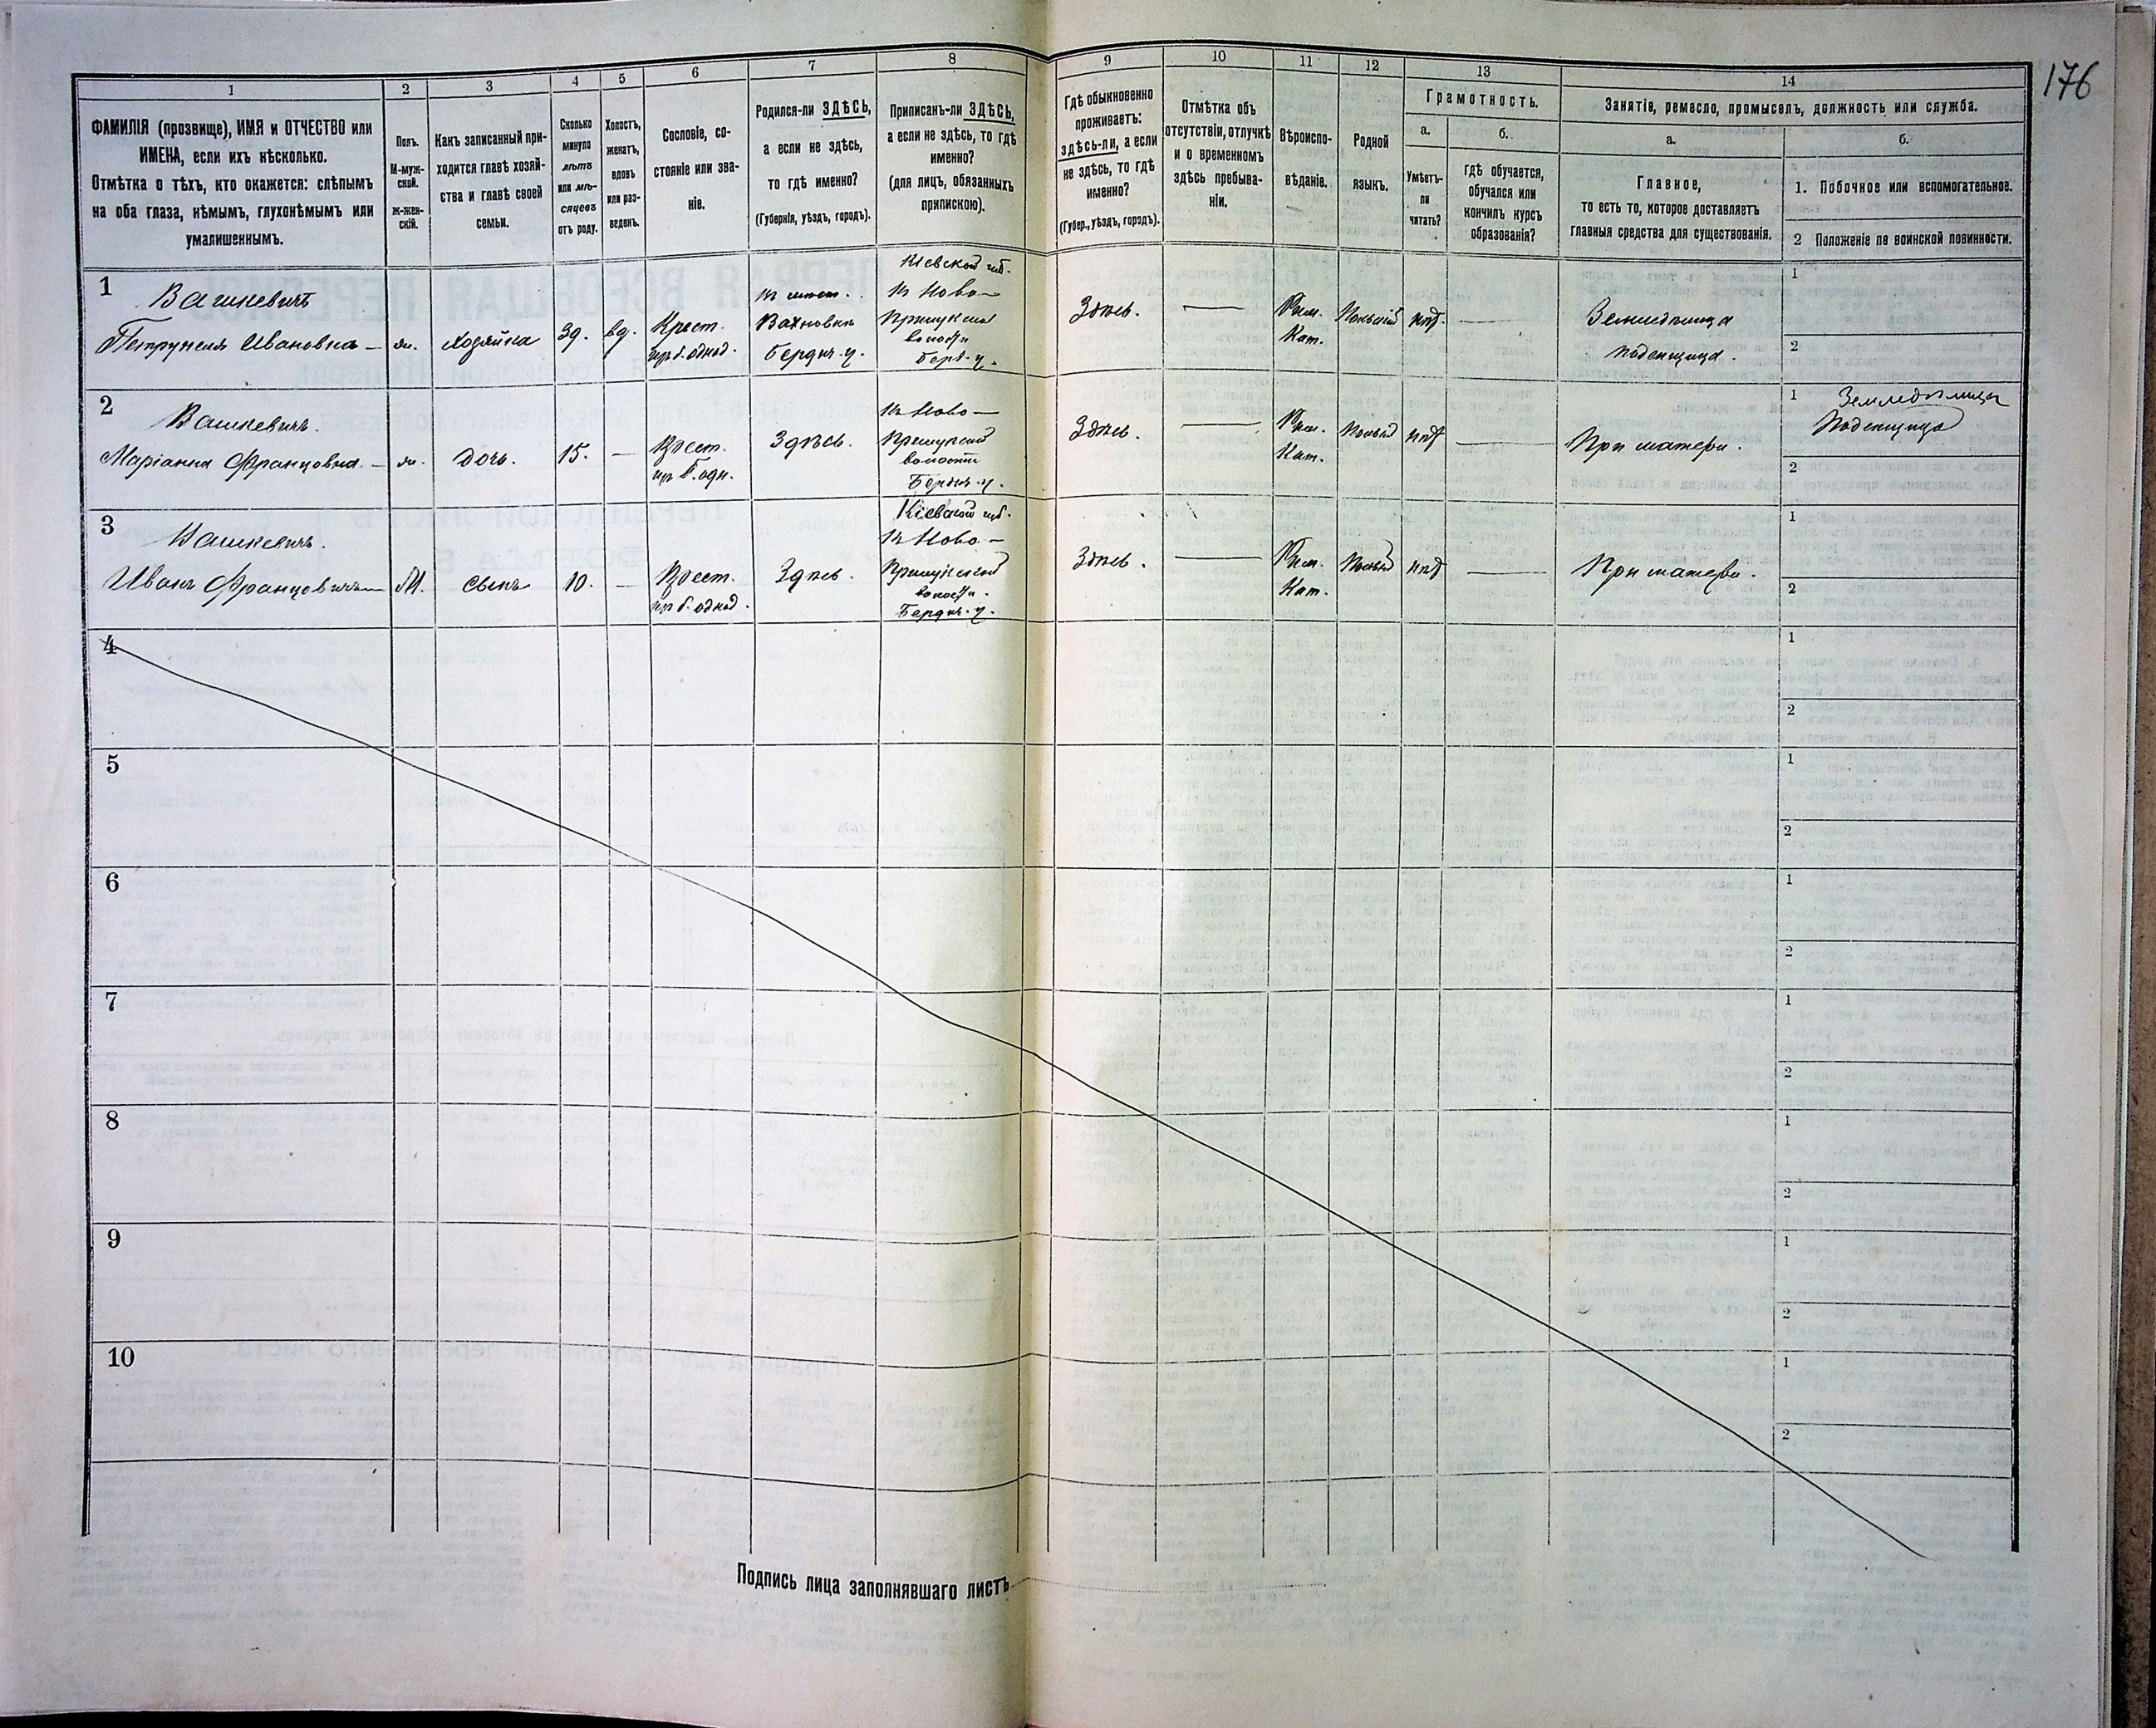 176
1
2
3
4
5
6
7
8
9
10
11
12
13
14
ФАМИЛІЯ (прозвище), ИМЯ и ОТЧЕСТВО или
ИМЕНА, если ихъ нѣсколько.
Отмѣтка о тѣхъ, кто окажется: слѣпымъ
на оба глаза, нѣмымъ, глухонѣмымъ или
умалишеннымъ.
Полъ.
М-муж-
ской.
ж-жен-
скій.
Какъ записанный при-
ходится главѣ хозяй-
ства и главѣ своей
семьи.
Сколько
минуло
лѣтъ
или мѣ-
сяцевъ
отъ роду.
Холостъ,
женатъ,
вдовъ
или раз-
веденъ.
Сословіе, со-
стояніе или зва-
ніе.
Родился-ли ЗДѢСЬ,
а если не здѣсь,
то гдѣ именно?
(Губернія, уѣздъ, городъ).
Приписанъ-ли ЗДѢСЬ,
а если не здѣсь, то гдѣ
именно?
(для лицъ, обязанныхъ
припискою).
Гдѣ обыкновенно
проживаетъ:
здѣсь-ли, а если
не здѣсь, то гдѣ
именно?
(Губер., уѣздъ, городъ).
Отмѣтка объ
отсутствіи, отлучкѣ
и о временномъ
здѣсь пребыва-
ніи.
Вѣроиспо-
вѣданіе.
Родной
языкъ.
Грамотность.
а.
б.
Умѣетъ-
ли
читать?
гдѣ обучается,
обучался или
кончилъ курсъ
образованія?
Занятіе, ремесло, промыселъ, должность или служба.
а.
б.
Главное,
то есть то, которое доставляетъ
главныя средства для существованія.
1. Побочное или вспомогательное.
2 Положеніе по воинской повинности.
1
Вашкевичъ
Петрунеля Ивановна —
ж.
Хозяйка
39.
вд.
Крест.
изъ б. однод.
Вахновка
Бердич. у.
Кіевской губ.
Ново-
волости
Берд. у.
Здѣсь.
—
Рим.
Кат.
Польскій
нѣт.
—
поденщица.
1
2
2
Вашкевичъ.
Маріанна Францовна. —
ж.
дочь.
15.
—
Крест.
изъ б. одн.
Здѣсь.
Ново —
волости
Бердич. у.
Здѣсь.
—
Рим.
Кат.
нѣт
—
При матери.
1
Поденщица
2
3
Вашкевичъ.
Иванъ Францовичъ —
М.
сынъ
10.
—
Крест.
из б. однод.
Здѣсь.
Кіевской губ.
Ново —
волости.
Бердич. у.
Здѣсь.
—
Рим.
Кат.
нѣт
—
При матери.
1
2
4
1
2
5
1
2
6
1
2
7
1
2
8
1
2
9
1
2
10
1
2
Подпись лица заполнявшаго листъ